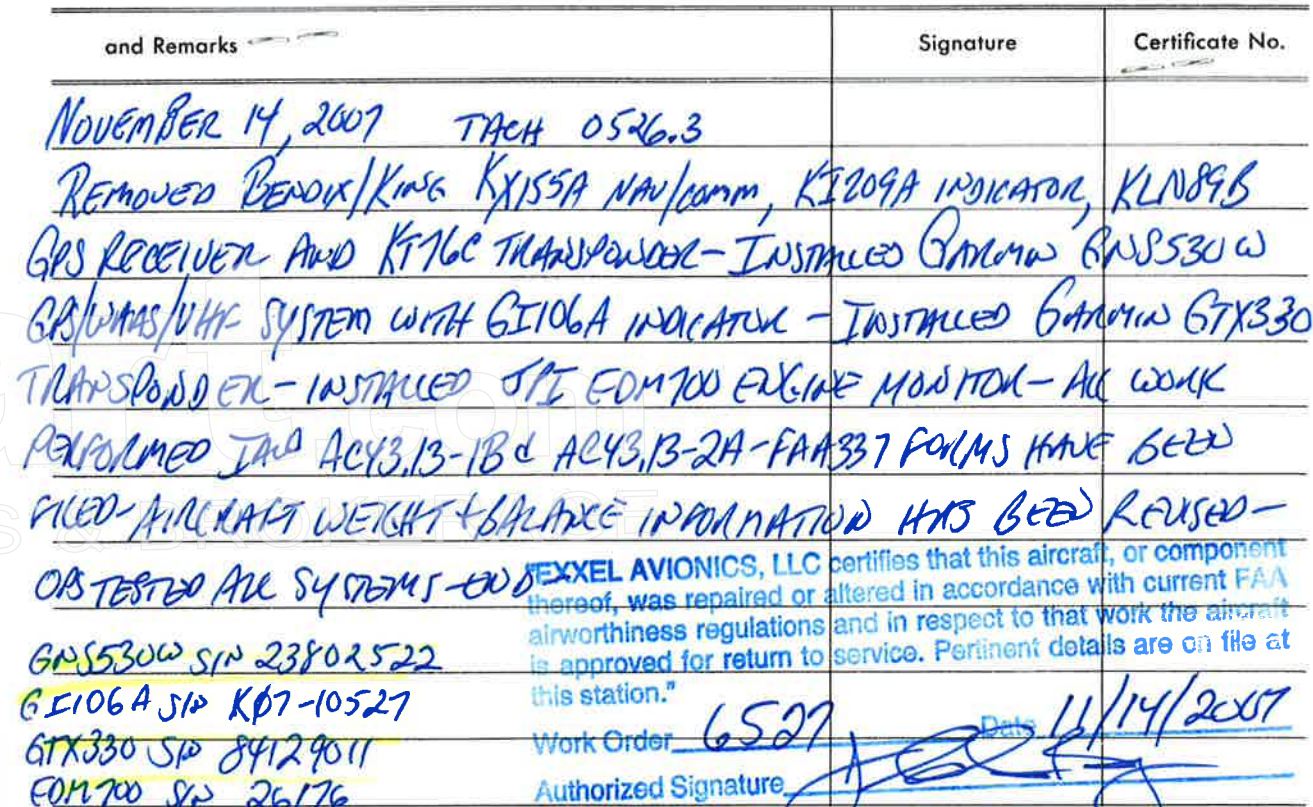 and Remarks Signature Certificate No.
NOVEMBER 14, 2007 TACH 0526.3
REMOVED BENDIX/KING KX155A NAV/COMM, KI209A INDICATOR, KLN89B
GPS RECEIVER AND KT76C TRANSPONDER - INSTALLED GARMIN GNS530W
GPS/WAAS/VHF SYSTEM WITH GI106A INDICATOR - INSTALLED GARMIN GTX330
TRANSPONDER - INSTALLED JPI EDM700 ENGINE MONITOR - ALL WORK
PERFORMED IAW AC43.13-1B & AC43.13-2A - FAA337 FORMS HAVE BEEN
FILED - AIRCRAFT WEIGHT + BALANCE INFORMATION HAS BEEN REVISED -
OPS TESTED ALL SYSTEMS - END
"EXXEL AVIONICS, LLC certifies that this aircraft, or component
thereof, was repaired or altered in accordance with current FAA
airworthiness regulations and in respect to that work the aircraft
is approved for return to service. Pertinent details are on file at
this station."
GNS530W S/N 23802522
GI106A S/N K07-10527
GTX330 S/N 84129011
EDM700 S/N 26176
Work Order 6527 Date 11/14/2007
Authorized Signature